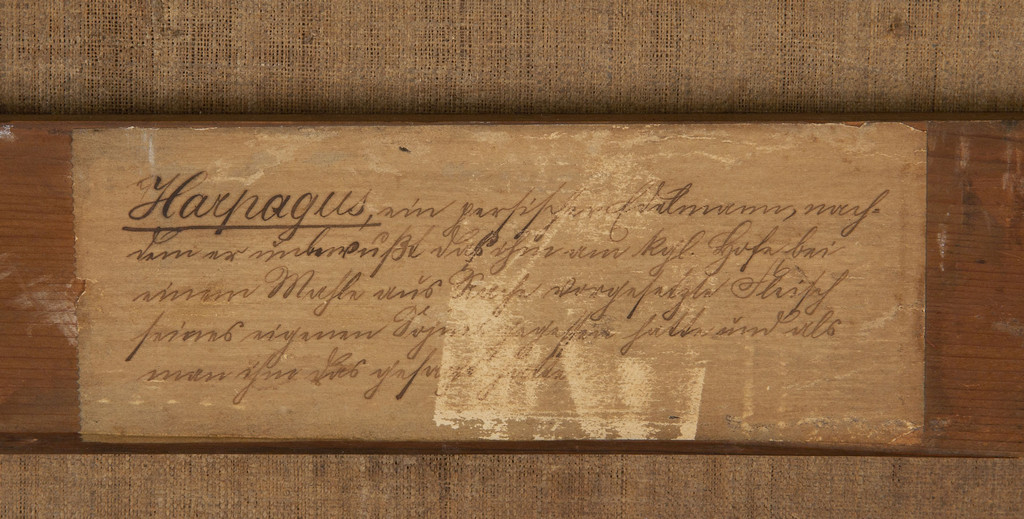 Harpagus, ein persischer Edelmann, nach-
dem er unbewußt das ihm am kgl. Hofe bei
einem Mahle aus Rache vorgesetzte Fleisch
seines eigenen Sohnes gegessen hatte und als
man ihm das gesagt hatte